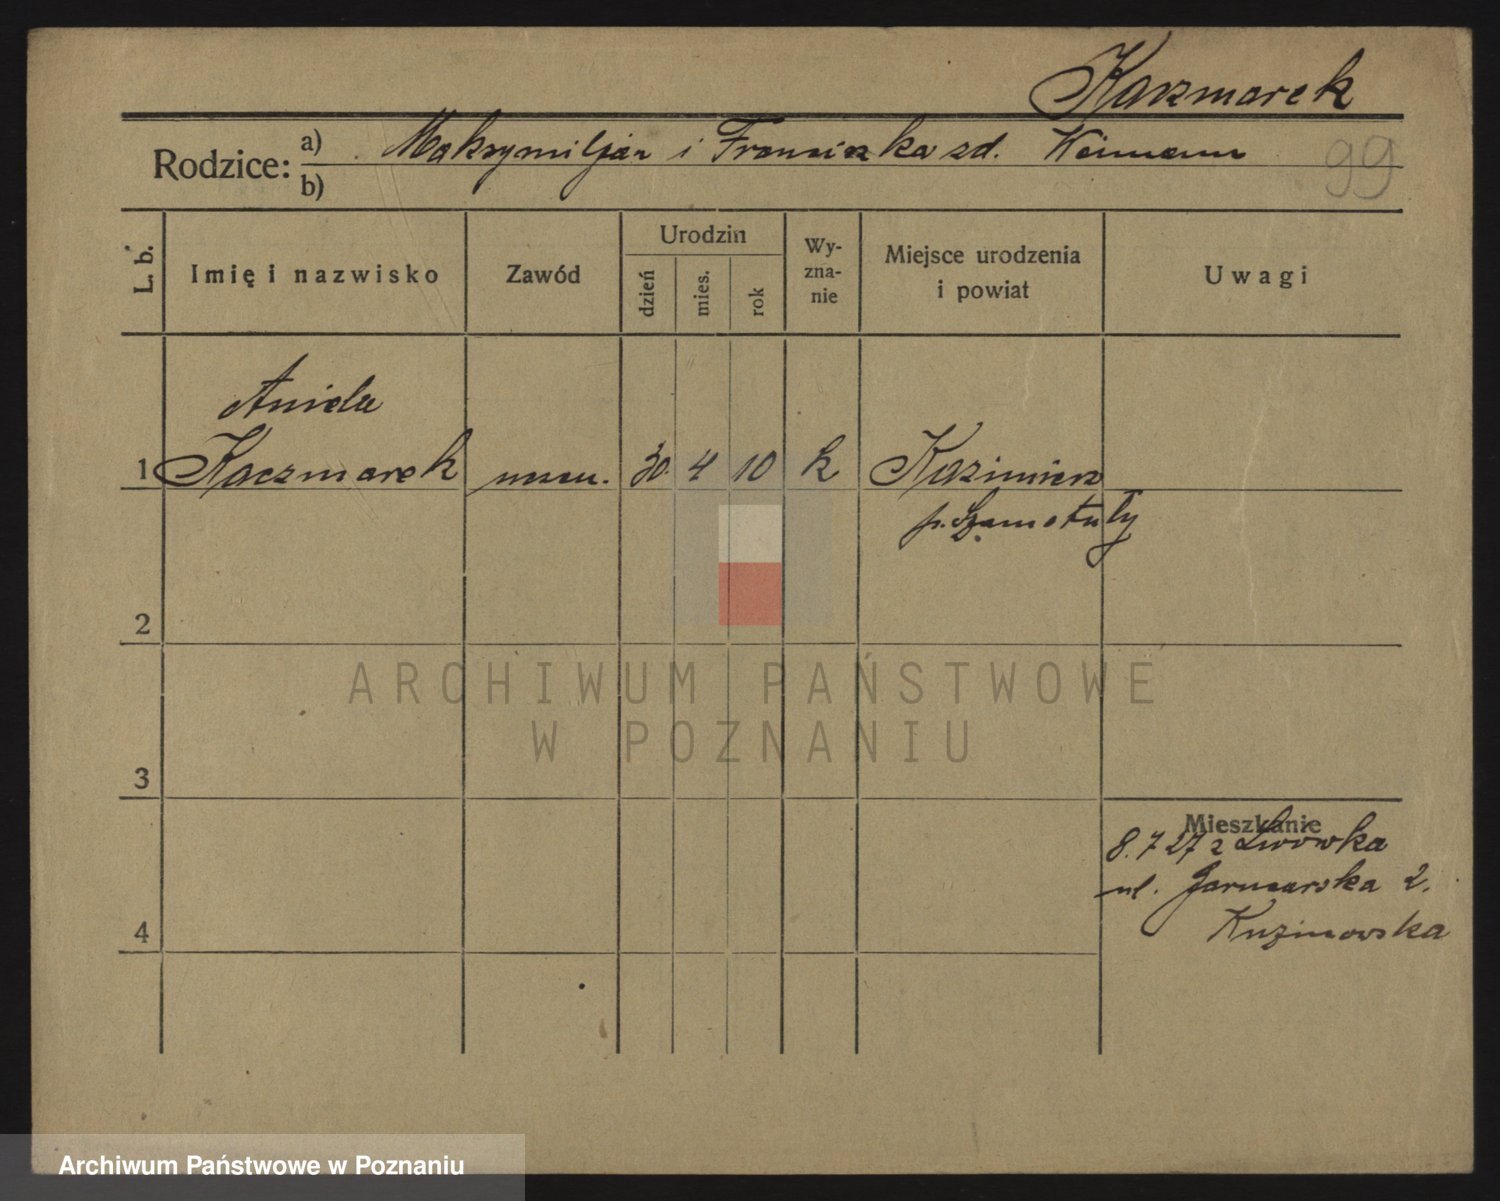 Kaczmarek
Rodzice: a) Maksymiljan i Franciszka zd.
b)
99
L. b.
Imię i nazwisko
Zawód
Urodzin
dzień
mies.
rok
Wy-
zna-
nie
Miejsce urodzenia
i powiat
Uwagi
Aniela
1 Kaczmarek 30. 4 10 k Kazimierz
p. Szamotuły
2
3
4
Mieszkanie
8. 7 27 z Lwówka
ul. 2.
ARCHIWUM PAŃSTWOWE
W POZNANIU
Archiwum Państwowe w Poznaniu